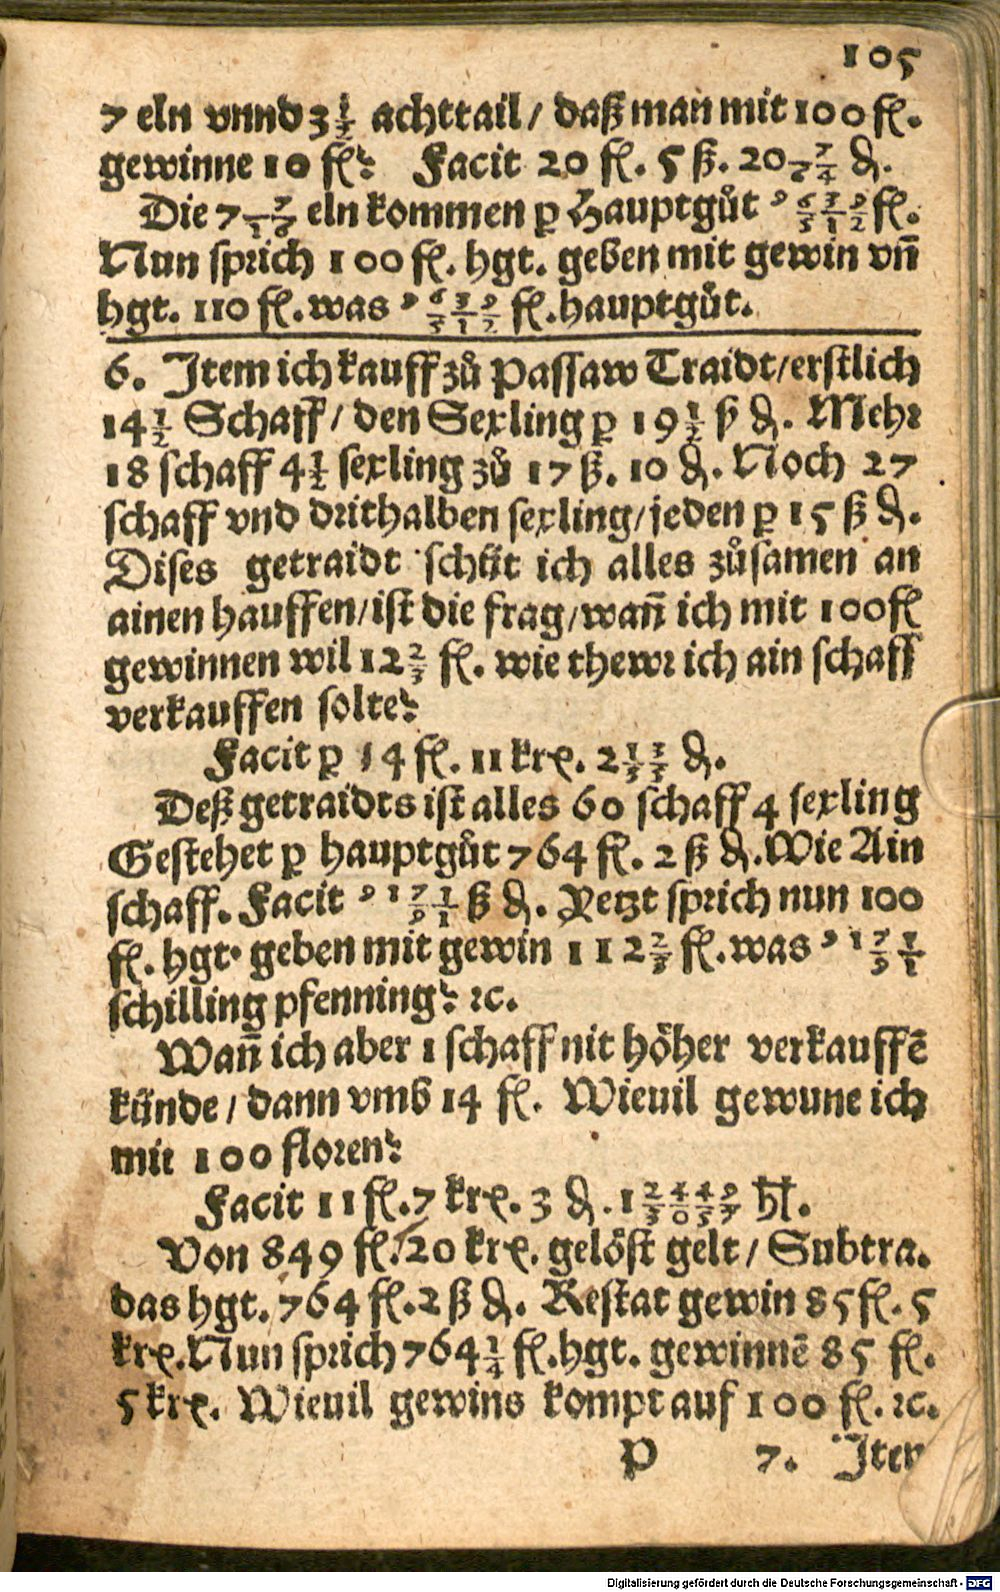 105
7 eln vnnd 3 1/2 achttail / daß man mit 100 fl.
gewinne 10 fl? Facit 20 fl. 5 ß. 20 7/64 ₰.
Die 7 7/16 eln kommen ꝑ Hauptgůt 9639/512 fl.
Nun sprich 100 fl. hgt. geben mit gewin vn̄
hgt. 110 fl. was 9639/512 fl. hauptgůt.
6. Item ich kauff zů Passaw Traidt / erstlich
14 1/2 Schaff / den Sexling ꝑ 19 1/2 ß ₰. Mehr
18 schaff 4 1/2 sexling zů 17 ß. 10 ₰. Noch 27
schaff vnd drithalben sexling / jeden ꝑ 15 ß ₰.
Dises getraidt schüt ich alles zůsamen an
ainen hauffen / ist die frag / wan̄ ich mit 100 fl
gewinnen wil 12 2/3 fl. wie thewr ich ain schaff
verkauffen solte?
Facit ꝑ 14 fl. 11 krx. 2 13/33 ₰.
Deß getraidts ist alles 60 schaff 4 sexling
Gestehet ꝑ hauptgůt 764 fl. 2 ß ₰. Wie Ain
schaff. Facit 9171/91 ß ₰. Yetzt sprich nun 100
fl. hgt. geben mit gewin 112 2/3 fl. was 9171/91
schilling pfenning? ꝛc.
Wan̄ ich aber 1 schaff nit höher verkauffē
künde / dann vmb 14 fl. Wieuil gewune ich
mit 100 floren?
Facit 11 fl. 7 krx. 3 ₰. 1 2449/3057 hl.
Von 849 fl. 20 krx. gelöst gelt / Subtra.
das hgt. 764 fl. 2 ß ₰. Restat gewin 85 fl. 5
krx. Nun sprich 764 1/4 fl. hgt. gewinnē 85 fl.
5 krx. Wieuil gewins kompt auf 100 fl. ꝛc.
P 7. Item
Digitalisierung gefördert durch die Deutsche Forschungsgemeinschaft - DFG